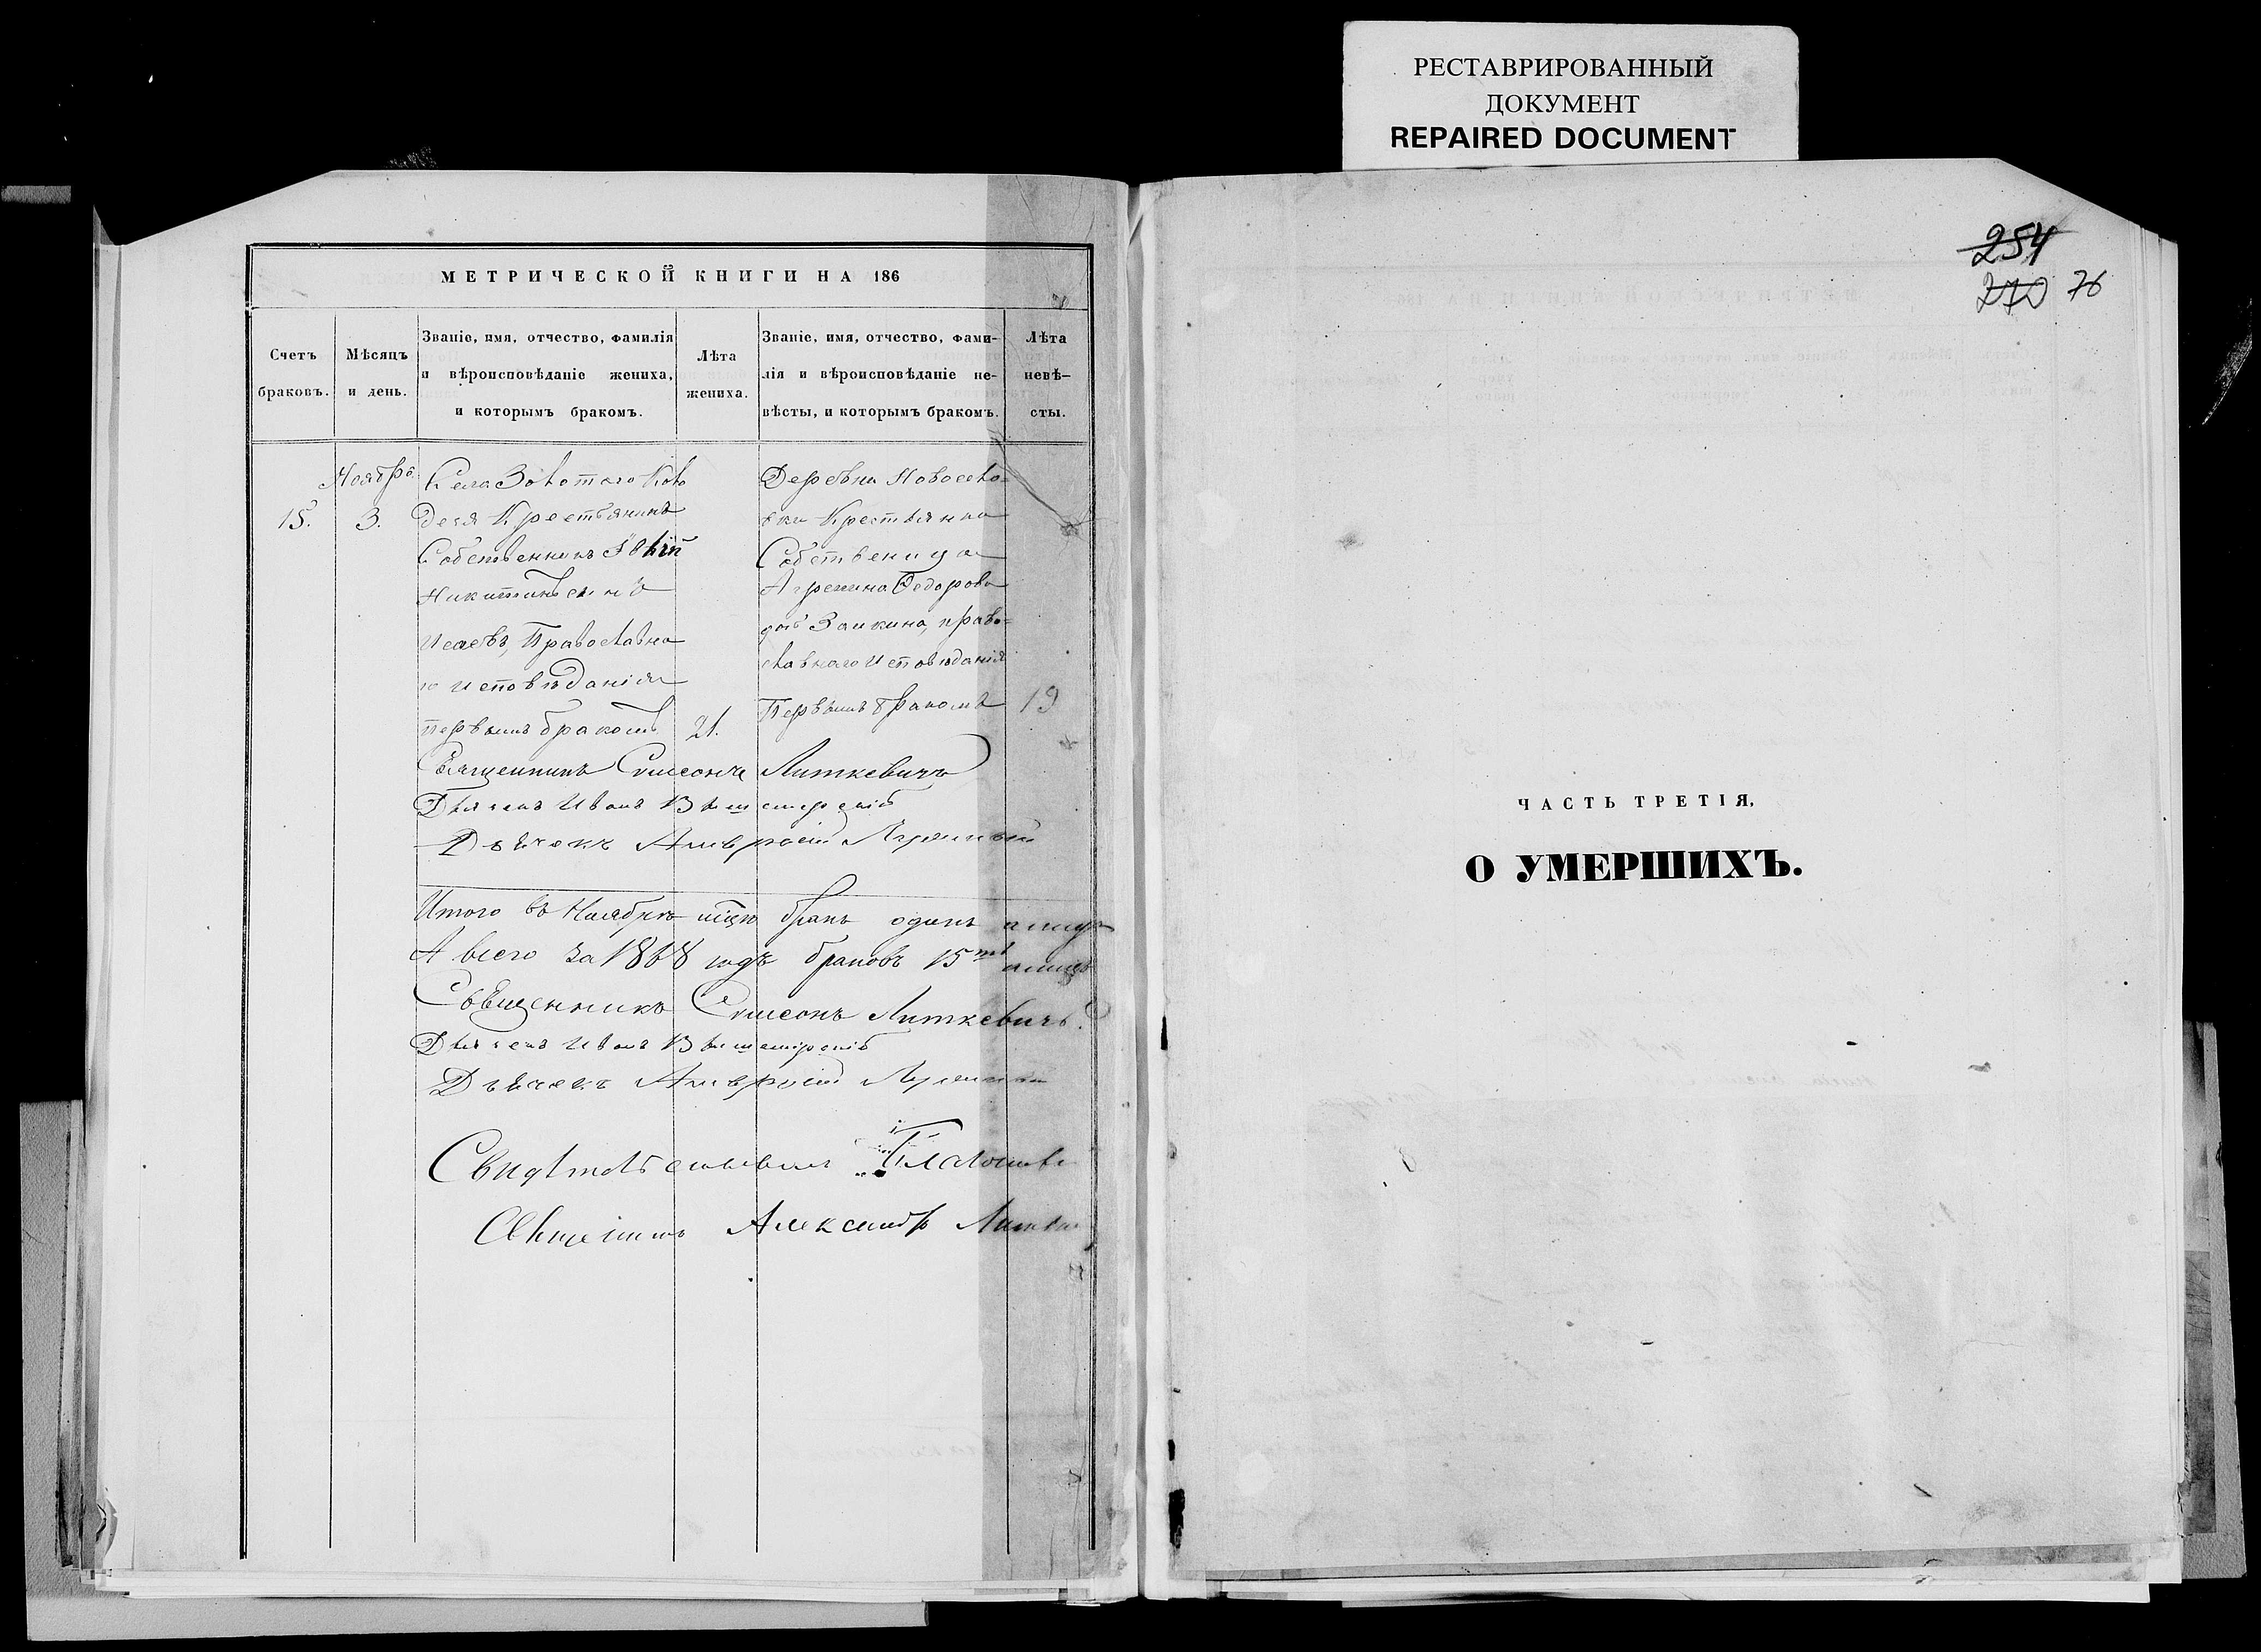 РЕСТАВРИРОВАННЫЙ
ДОКУМЕНТ
REPAIRED DOCUMENT
МЕТРИЧЕСКОЙ КНИГИ НА 186
Счетъ
браковъ.
Мѣсяцъ
и день.
Званіе, имя, отчество, фамилія
и вѣроисповѣданіе жениха,
и которымъ бракомъ.
Лѣта
жениха.
Званіе, имя, отчество, фами-
лія и вѣроисповѣданіе не-
вѣсты, и которымъ бракомъ.
Лѣта
невѣ-
сты.
15.
Ноябрь
3.
Села Золотого Коло
дезя Крестьянинъ
Собственникъ
Исаевъ, Православна
го исповѣданія
первымъ бракомъ
21.
Деревни Новосело=
вки Крестьянка
Собственица
Федорова
Заикина, право=
славнаго исповѣданія
Первымъ бракомъ
19
Священникъ Симеонъ Литкевичъ
Дьячекъ Иванъ
Амвросій
Итого въ Ноябрѣ мцѣ бракъ одинъ
А всего за 1868 годъ браковъ 15
Священникъ Симеонъ Литкевичъ
Дьячекъ Иванъ
Амвросій
Александр
254
270 76
ЧАСТЬ ТРЕТІЯ,
О УМЕРШИХЪ.